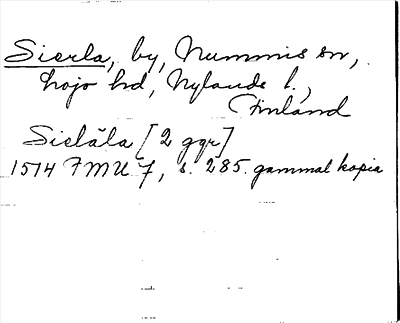 Sierla, by, Nummis sn,
Lojo hd, Nylands l.,
Finland
Sielåla [2 ggr]
1514 FMU 7, s. 285. gammal kopia